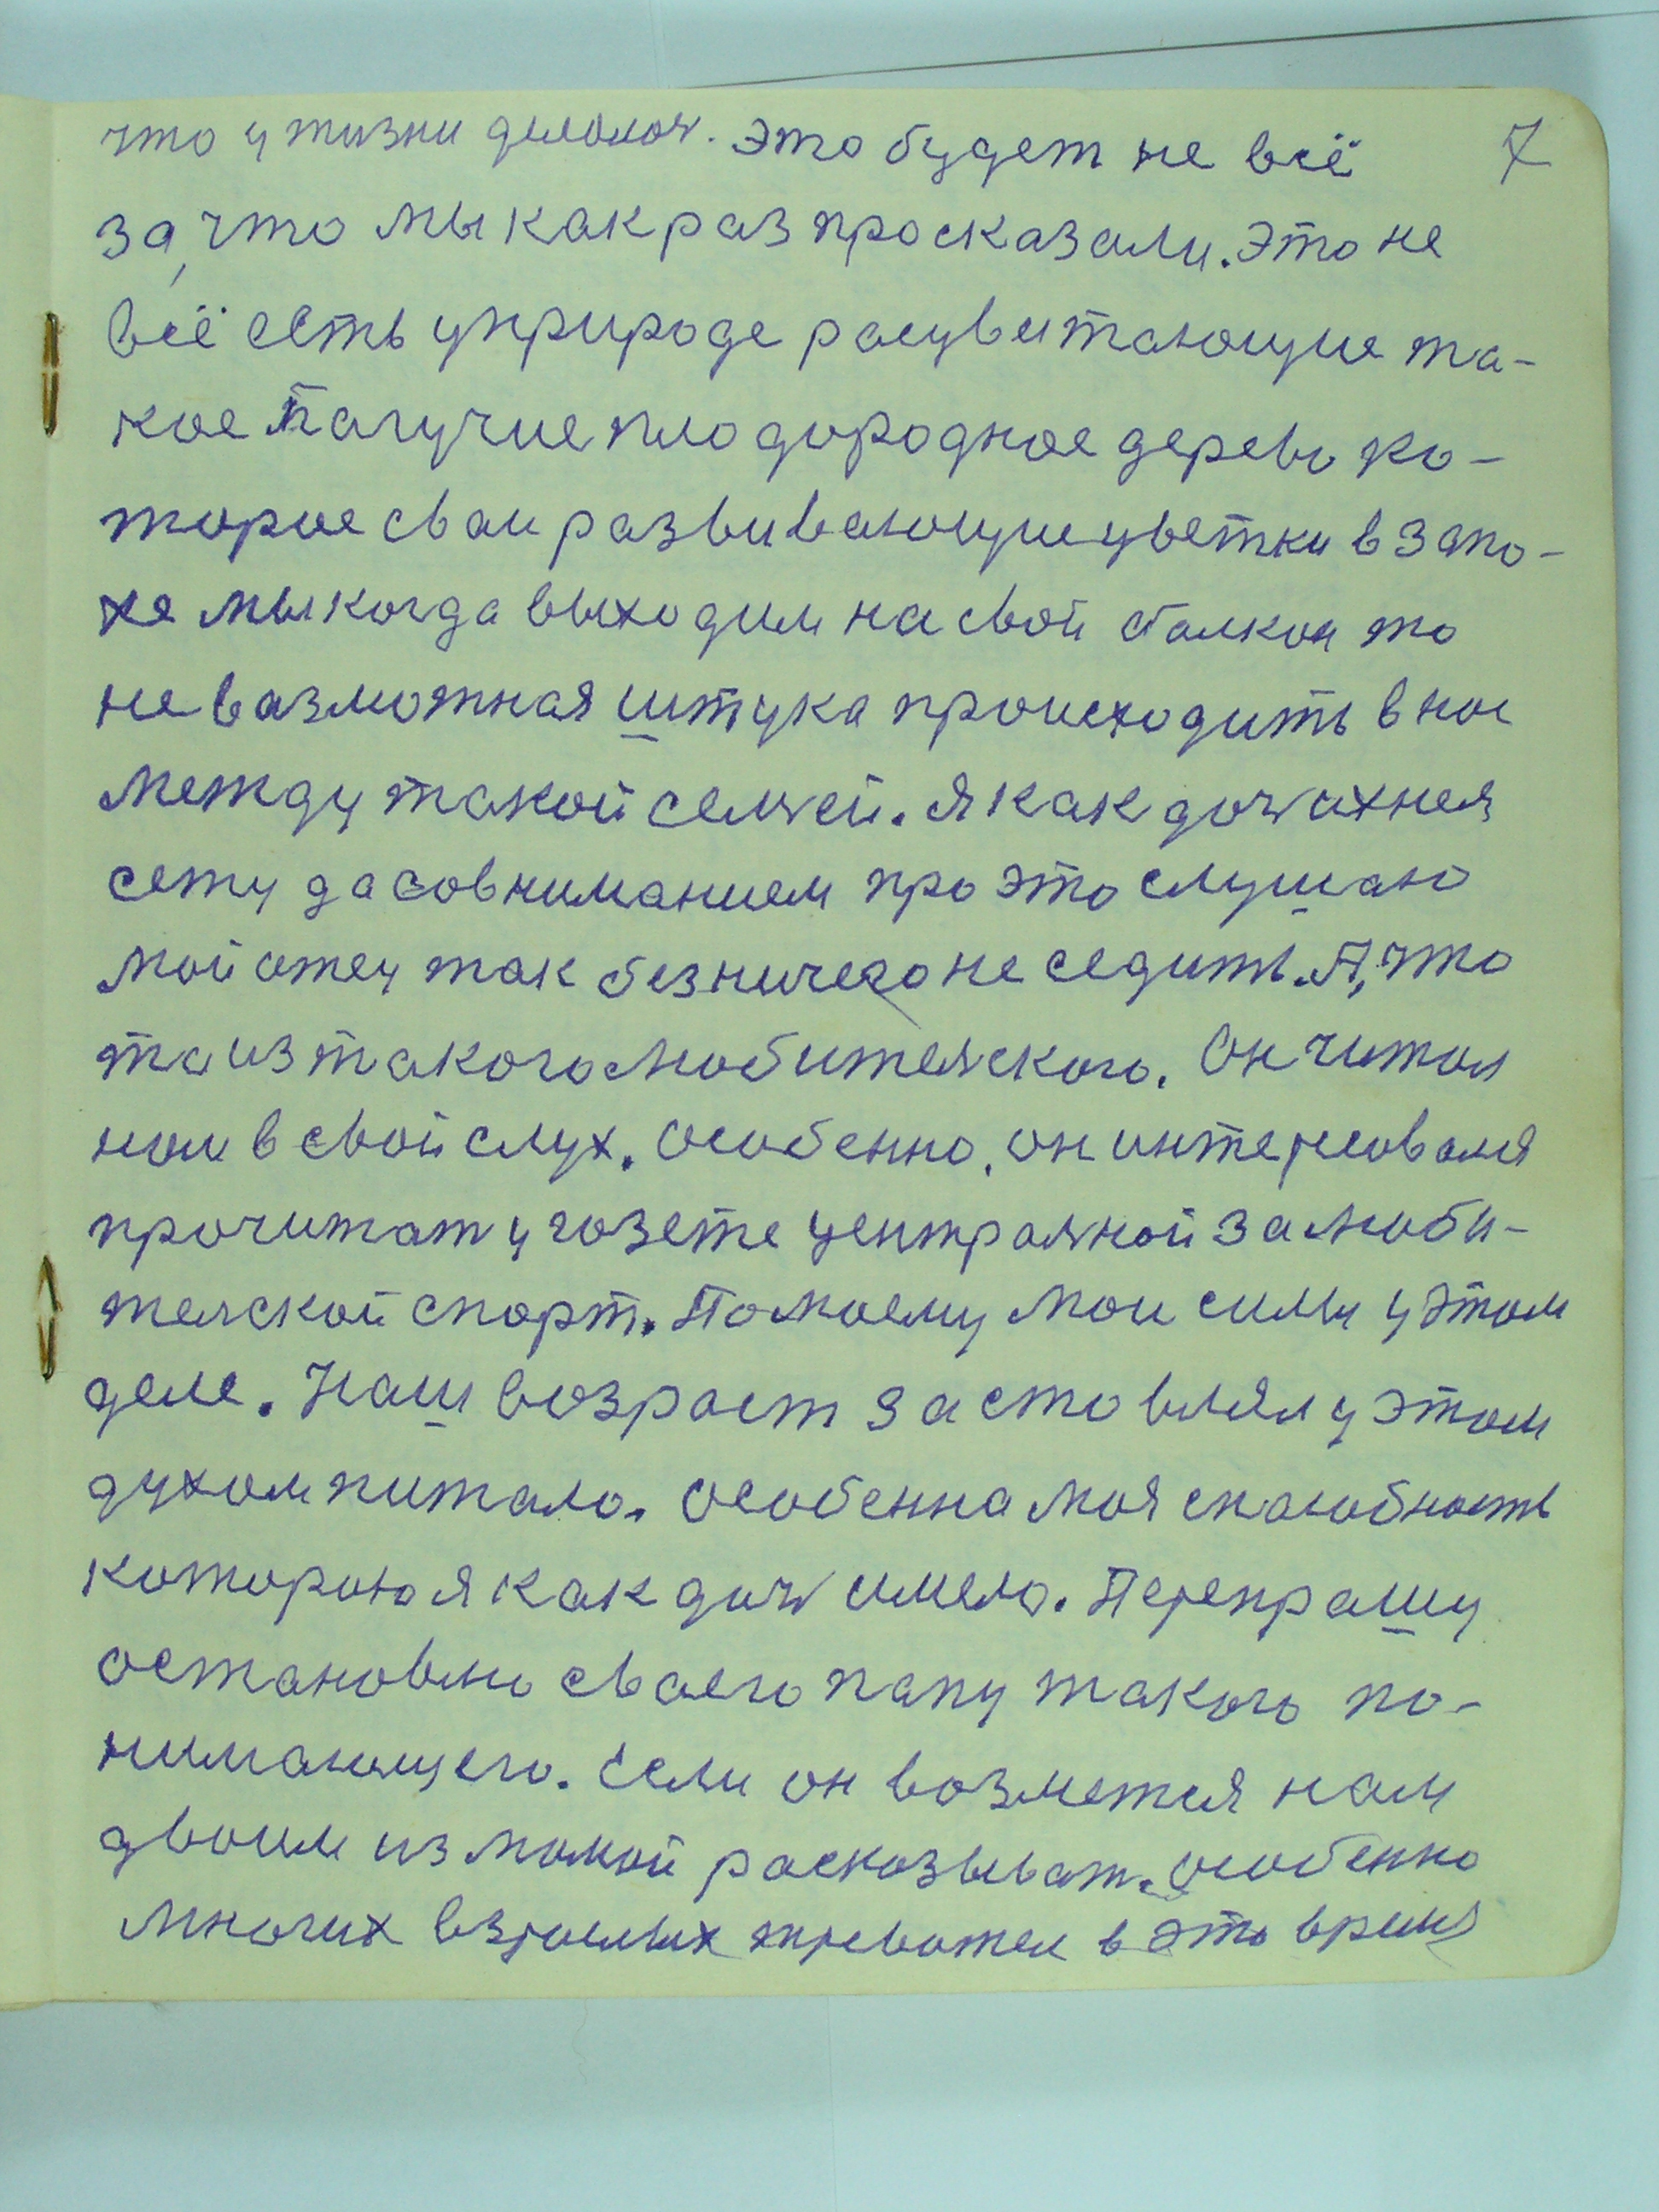 что у жизни делолоч. Это будет не всё 7
за, что мы как раз просказали. Это не
всё есть у природе расцвитающие та-
кое пагучие плодородное дерево ко-
торое сваи развивающие цветки в запо-
хе мы когда выходим на свой балкон то
не вазможная штука происходить в нас
между такой семъей. Я как доч ихнея
сежу да совниманием про это слушаю
мой отец так безничего не седить. А, что
та из такого любителского. Он читал
нам в свой слух. Особенно, он интересовался
прочитат у газете централной за люби-
телской спорт. Помоему мои силы у этом
деле. Наш возраст заставлял у этом
духом питало. Особенна моя спасобность
которою я как доч имело. Перепрашу
остановлю сваего папу такого по-
нимающего. Если он возметея нам
двоим из мамой расказыват. Особенно
многих взрослых тревожел в это время